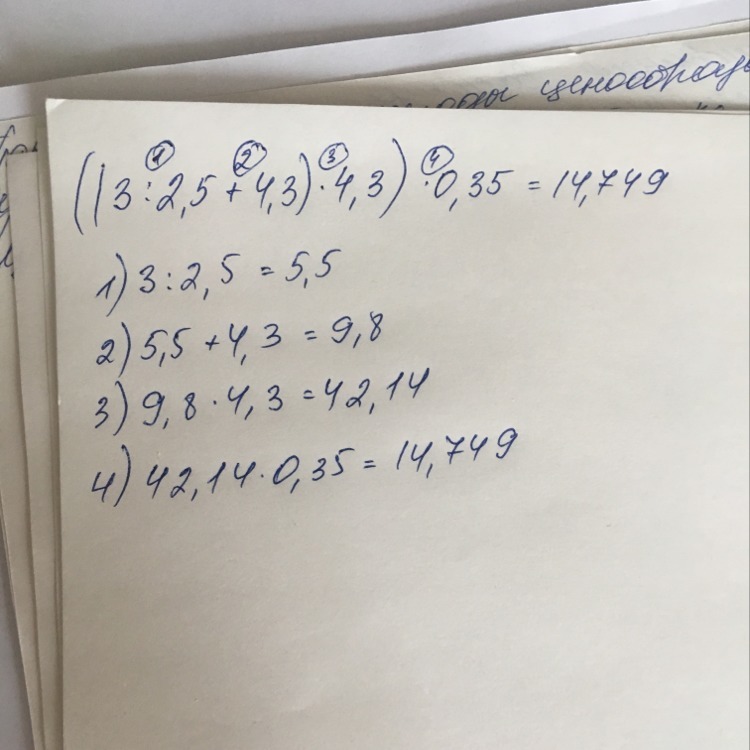 оды ценообразов
1 2 3 4
((3:2,5+4,3)·4,3)·0,35=14,749
1) 3:2,5=5,5
2) 5,5+4,3=9,8
3) 9,8·4,3=42,14
4) 42,14·0,35=14,749